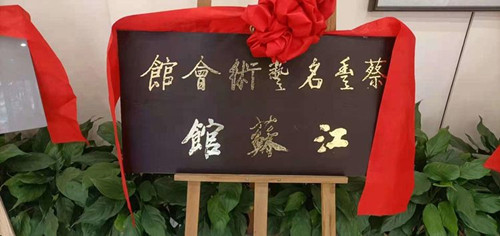 蔡豐名藝術會館
江蘇館